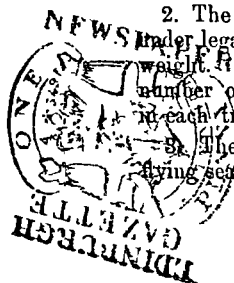 2. The
under legal
weight.
number o
in each t
3. The
flying sea
NEWSPAPER
ONE
PENNY
EDINBURGH
GAZETTE